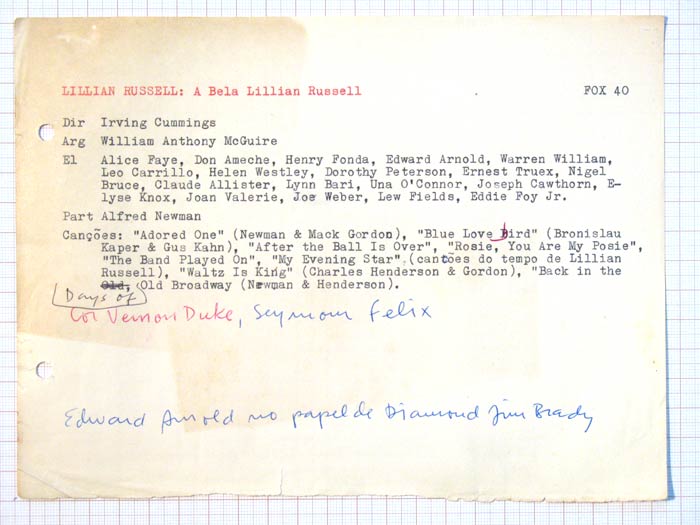 LILLIAN RUSSELL: A Bela Lillian Russell FOX 40
Dir Irving Cummings
Arg William Anthony McGuire
El Alice Faye, Don Ameche, Henry Fonda, Edward Arnold, Warren William,
Leo Carrillo, Helen Westley, Dorothy Peterson, Ernest Truex, Nigel
Bruce, Claude Allister, Lynn Bari, Una O'Connor, Joseph Cawthorn, E-
lyse Knox, Joan Valerie, Joe Weber, Lew Fields, Eddie Foy Jr.
Part Alfred Newman
Canções: "Adored One" (Newman & Mack Gordon), "Blue Love Bird" (Bronislau
Kaper & Gus Kahn), "After the Ball Is Over", "Rosie, You Are My Posie",
"The Band Played On", "My Evening Star" (cantões do tempo de Lillian
Russell), "Waltz Is King" (Charles Henderson & Gordon), "Back in the
Old, Old Broadway (Newman & Henderson).
Days of
Cor Vernon Duke, Seymour Felix
Edward Arnold no papel de Diamond Jim Brady